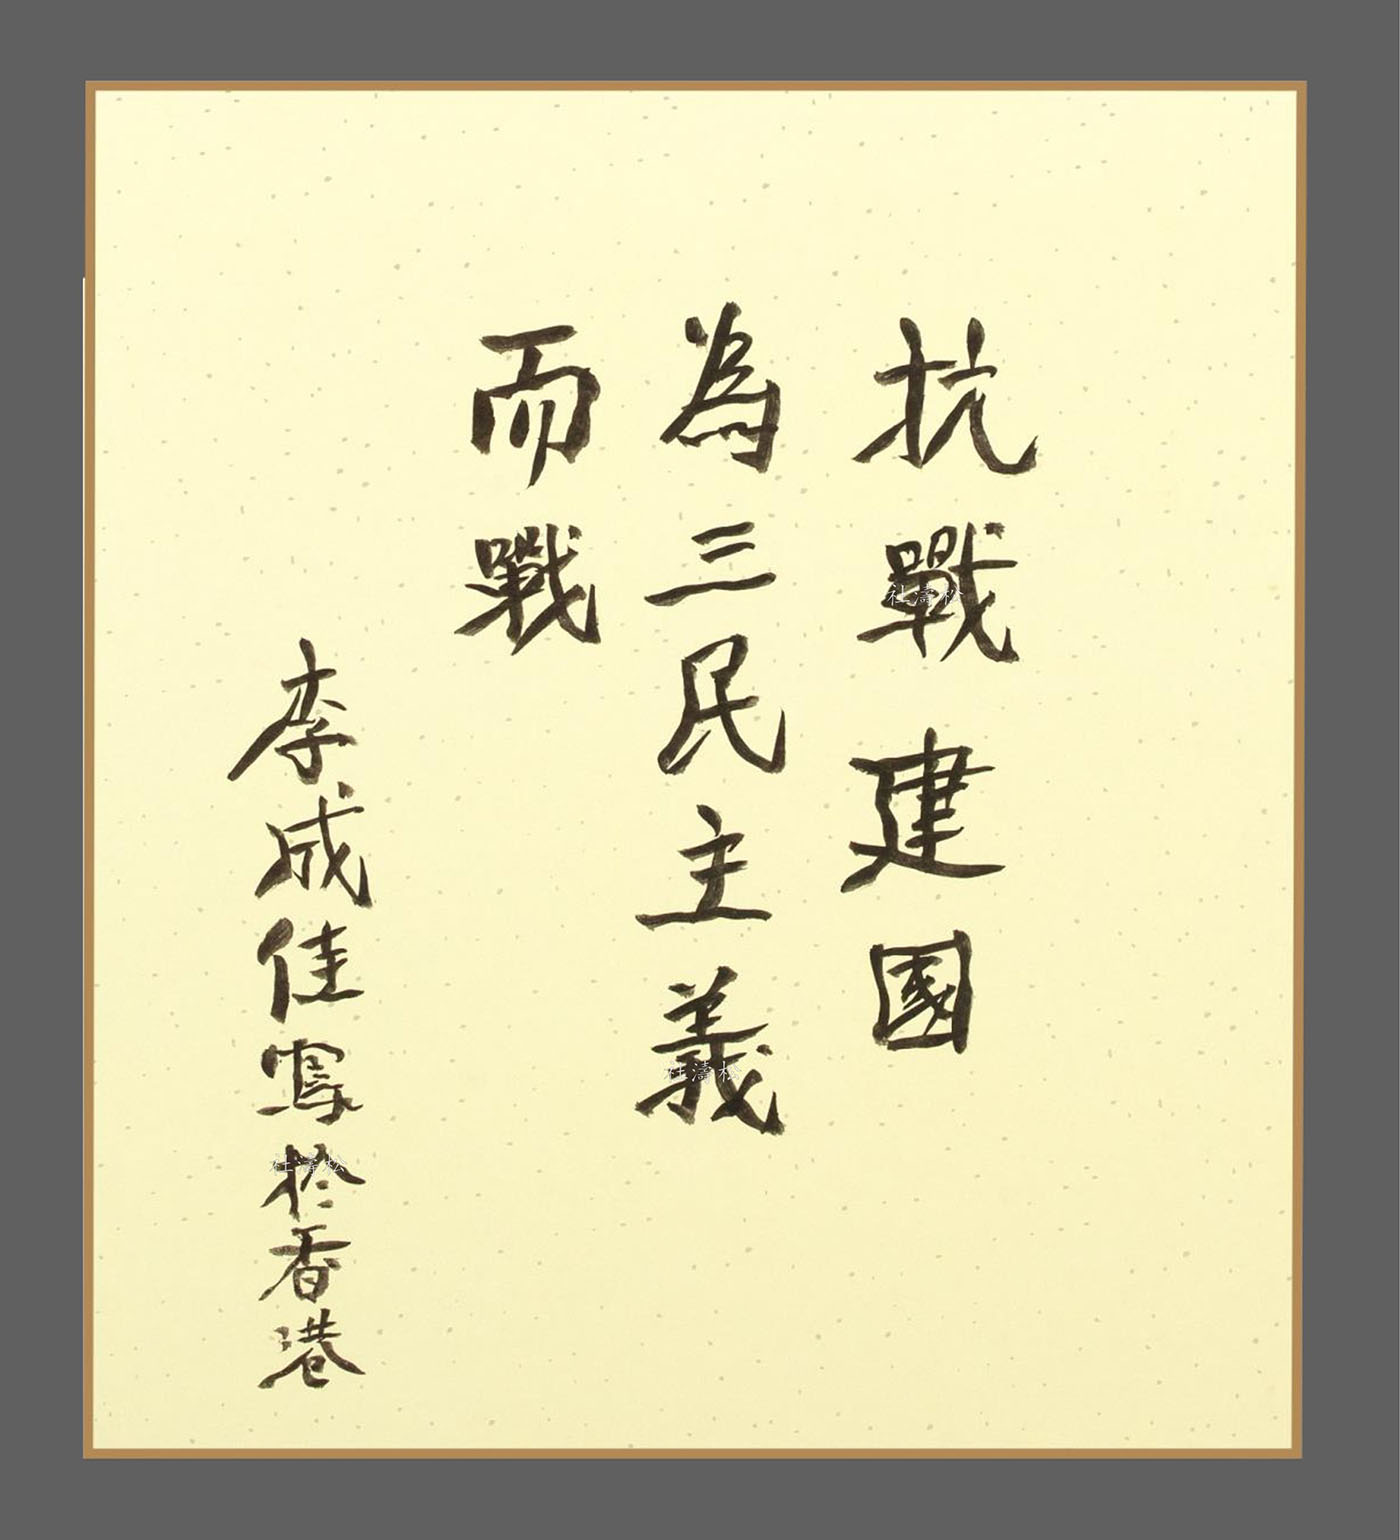 抗戰建國
為三民主義
而戰
李成佳寫於香港
杜濤松
杜濤松
杜濤松